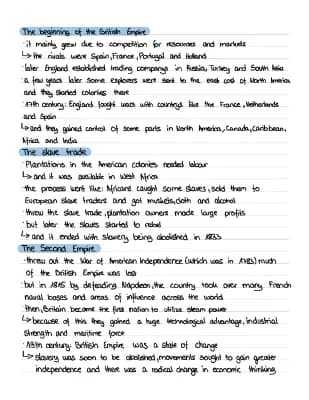 The beginning of the British Empire
· it mainly grew due to competition for resources and markets
↳ the rivals were Spain, France, Portugal and Holland
· later England established trading companys in Russia, Turkey and South Asia
· a few years later some explorers were sent to the east cost of North America
and they started colonies there
· 17th century: England fought wars with countrys like the France, Netherlands
and Spain
↳ and they gained control of some parts in North America, Canada, Caribbean,
Africa and India
The slave trade
· Plantations in the American colonies needed labour
↳ and it was available in West Africa
· the process went like: Africans caught some slaves, sold them to
European slave traders and got muskets, cloth and alcohol
· threw the slave trade, plantation owners made large profits
· but later the slaves started to rebel
↳ and it ended with slavery being abolished in 1833
The Second Empire
· threw out the War of American Independence (which was in 1783) much
of the British Empire was lost
· but in 1815 by defeating Napoleon, the country took over many French
naval bases and areas of influence across the world
· then, Britain became the first nation to utilize steam power
↳ because of this they gained a huge technological advantage, industrial
strength and maritime force
· 19th century: British Empire was a state of change
↳ slavery was soon to be abolished, movements sought to gain greater
independence and there was a radical change in economic thinking